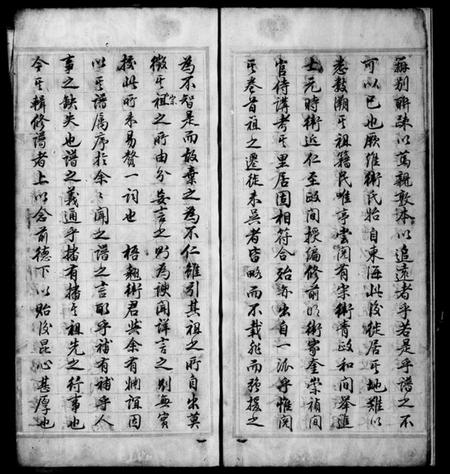 為別聯疎以篤親敦本以追遠者乎若是乎譜之不
可以已也厥維衛氏始自東海此後徙居之地難以
悉數溯其祖籍民唯亭雲間有宋衛青政和間舉進
士元時衛近仁至政間授編修前明衛家奎崇禎間
官侍講考其里居固相符合殆亦出自一派乎惟閱
其卷首祖之遷徙未吳者皆略而不載非而務援之
為不智是而故棄之為不仁雖引其祖之所自出莫
徵其祖宗之所由分妄言之野為諛聞詳言之別無實
按此所未易贅一詞也 梧翹衛君與余有姻誼因
以其譜屬序於余余聞之譜之言也乎補有補乎人
事之缺失也譜之義通乎播有播其祖先之行事也
今其輯修譜者上以念前德下以貽後昆心甚厚也